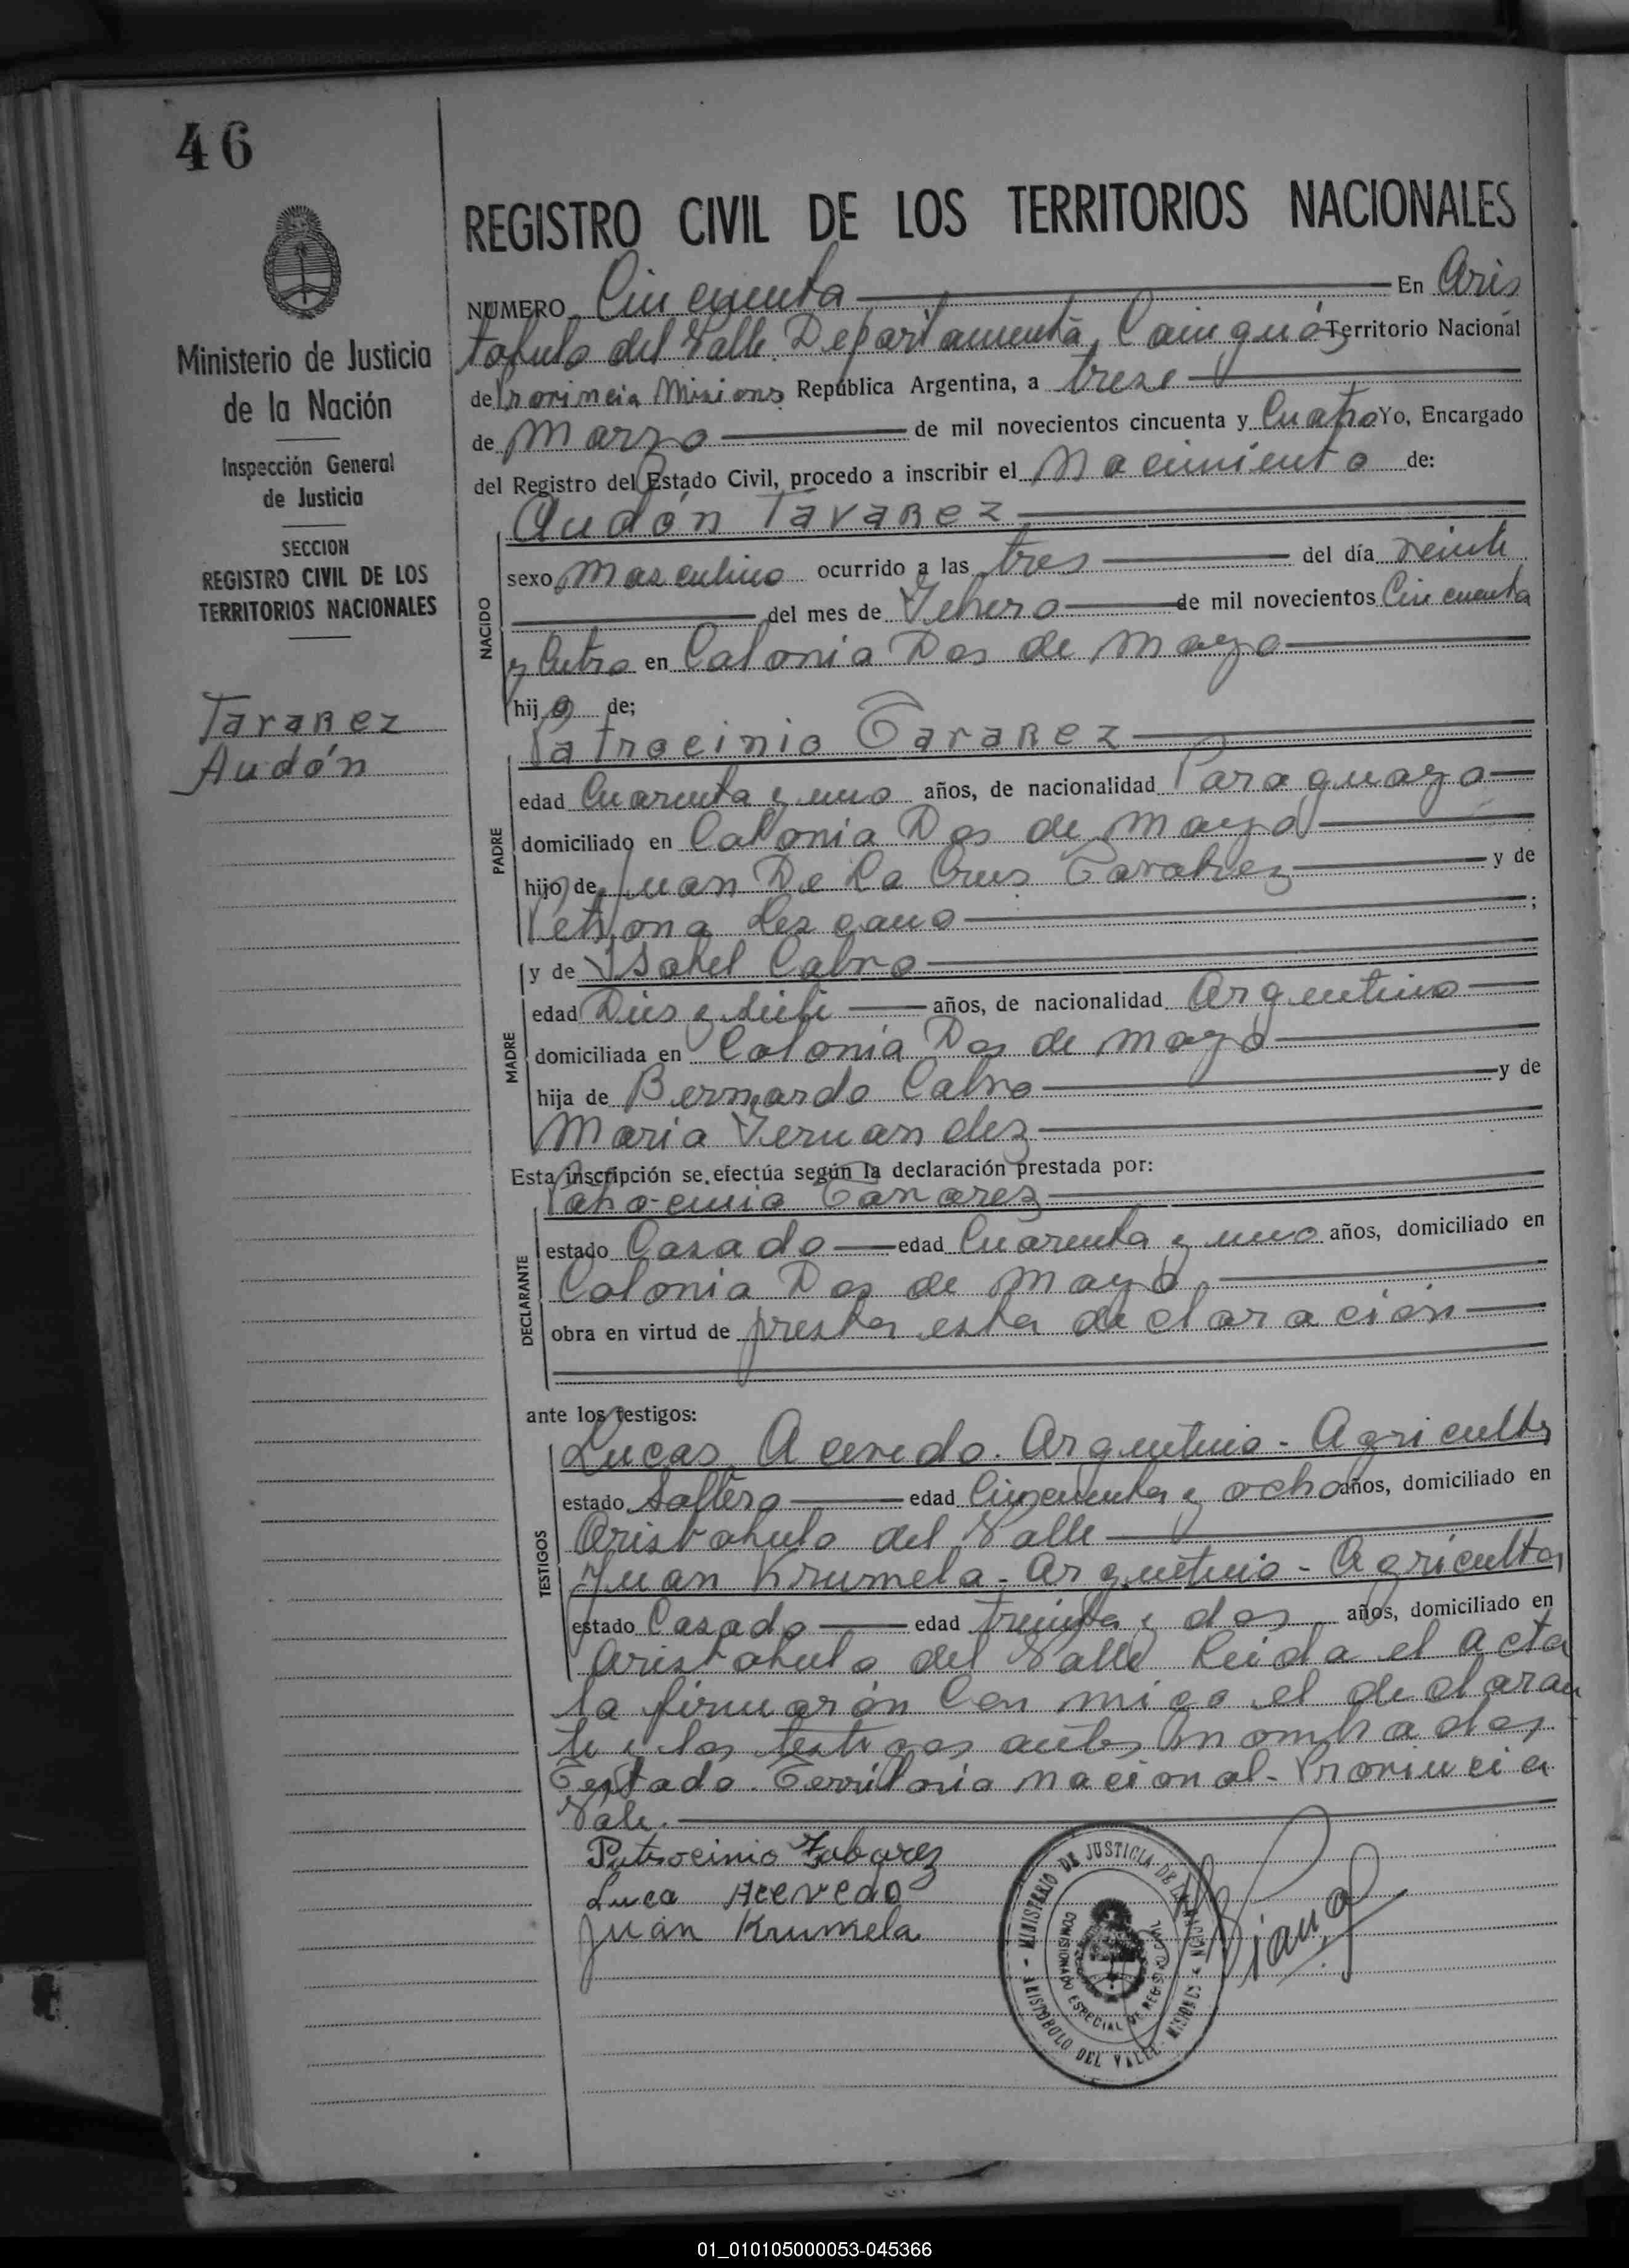 46
Ministerio de Justicia
de la Nación
Inspección General
de Justicia
SECCION
REGISTRO CIVIL DE LOS
TERRITORIOS NACIONALES
Tavarez
Audón
REGISTRO CIVIL DE LOS TERRITORIOS NACIONALES
NUMERO Cincuenta En Aris
tobulo del Valle Departamento Cainguás Territorio Nacional
de Provincia Misiones República Argentina, a trese
de Marzo de mil novecientos cincuenta y Cuatro Yo, Encargado
del Registro del Estado Civil, procedo a inscribir el Nacimiento de:
Audón Tavarez
NACIDO
sexo Masculino ocurrido a las tres del día veinte
del mes de Febrero de mil novecientos Cincuenta
y Cutro en Colonia Dos de Mayo
hijo de;
PADRE
Patrocinio Tavarez
edad Cuarenta y uno años, de nacionalidad Paraguayo
domiciliado en Colonia Dos de Mayo
hijo de Juan De La Crus Tavarez y de
Petrona Lezcano ;
MADRE
y de Isabel Calvo
edad Dies y siete años, de nacionalidad Argentino
domiciliada en Colonia Dos de Mayo
hija de Bernardo Calvo y de
Maria Fernandez
Esta inscripción se efectúa según la declaración prestada por:
DECLARANTE
Patrocinio Tavarez
estado Casado edad Cuarenta y uno años, domiciliado en
Colonia Dos de Mayo
obra en virtud de prestar esta declaración
ante los testigos:
TESTIGOS
Lucas Acevedo. Argentino - Agricultor
estado Soltero edad Cincuenta y ocho años, domiciliado en
Aristobulo del Valle
Juan Krumela - Argentino - Agricultor
estado Casado edad treinta y dos años, domiciliado en
Aristobulo del Valle Leida el Acta
la firmarón Con migo el declaran
te y los testigos antes nombrados
Testado. Territorio Nacional - Provincia
Vale.
Patrocinio Tabarez
Luca Acevedo
Juan Krumela
MINISTERIO DE JUSTICIA DE LA NACION
COMISIONADO ESPECIAL DE REGISTRO CIVIL
ARISTOBULO DEL VALLE - MISIONES
01_010105000053-045366